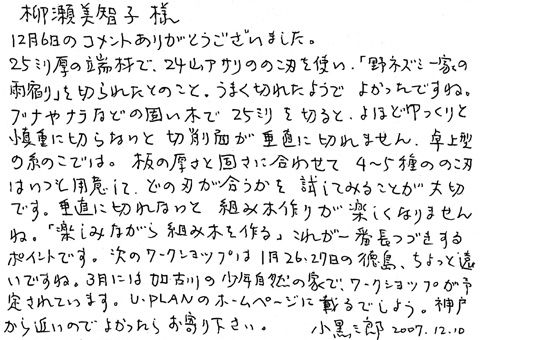 柳瀬美智子様
12月6日のコメントありがとうございました。
25ミリ厚の端材で、24山アサリののこ刃を使い、「野ネズミ一家の
雨宿り」を切られたとのこと。うまく切れたようで よかったですね。
ブナやナラなどの固い木で 25ミリを切ると、よほどゆっくりと
慎重に切らないと 切削面が垂直に切れません。卓上型
の糸のこでは。 板の厚さと固さに合わせて 4〜5種ののこ刃
はいつも用意して、どの刃が合うかを 試してみることが大切
です。垂直に切れないと 組み木作りが楽しくなりません
ね。「楽しみながら組み木を作る」これが一番長つづきする
ポイントです。次のワークショップは1月26.27日の徳島、ちょっと遠
いですね。3月には加古川の少年自然の家で、ワークショップが予
定されています。U-PLANのホームページに載るでしょう。神戸
から近いのでよかったらお寄り下さい。 小黒三郎 2007.12.10